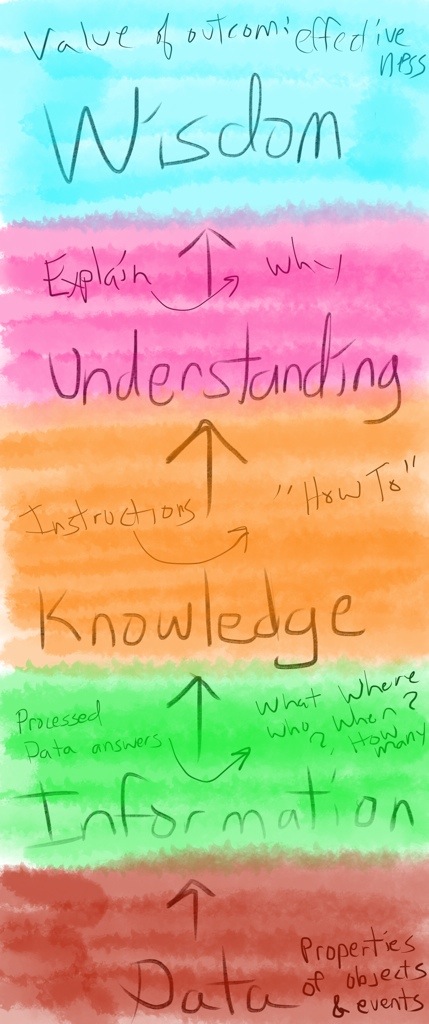 Value of outcom: effective
ness
Wisdom
Explain why
Understanding
Instructions "How To"
Knowledge
Processed
Data answers
What Where
who? When?
How
many
Information
Data
Properties
of objects
& events